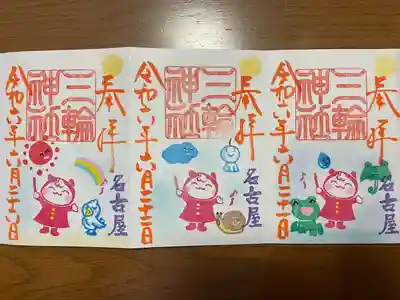 奉拝
三輪神社
令和六年六月二十一日
名古屋
奉拝
三輪神社
令和六年六月二十二日
名古屋
奉拝
三輪神社
令和六年六月二十六日
名古屋